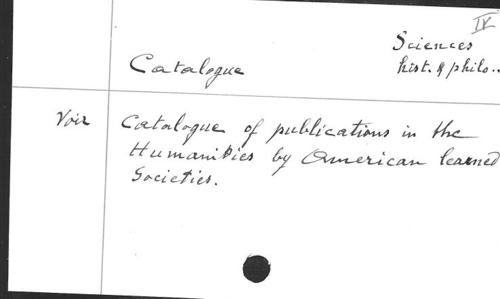 IV
Sciences
hist. & philo..
Catalogue
Voir Catalogue of publications in the
Humanities by American learned
Societies.